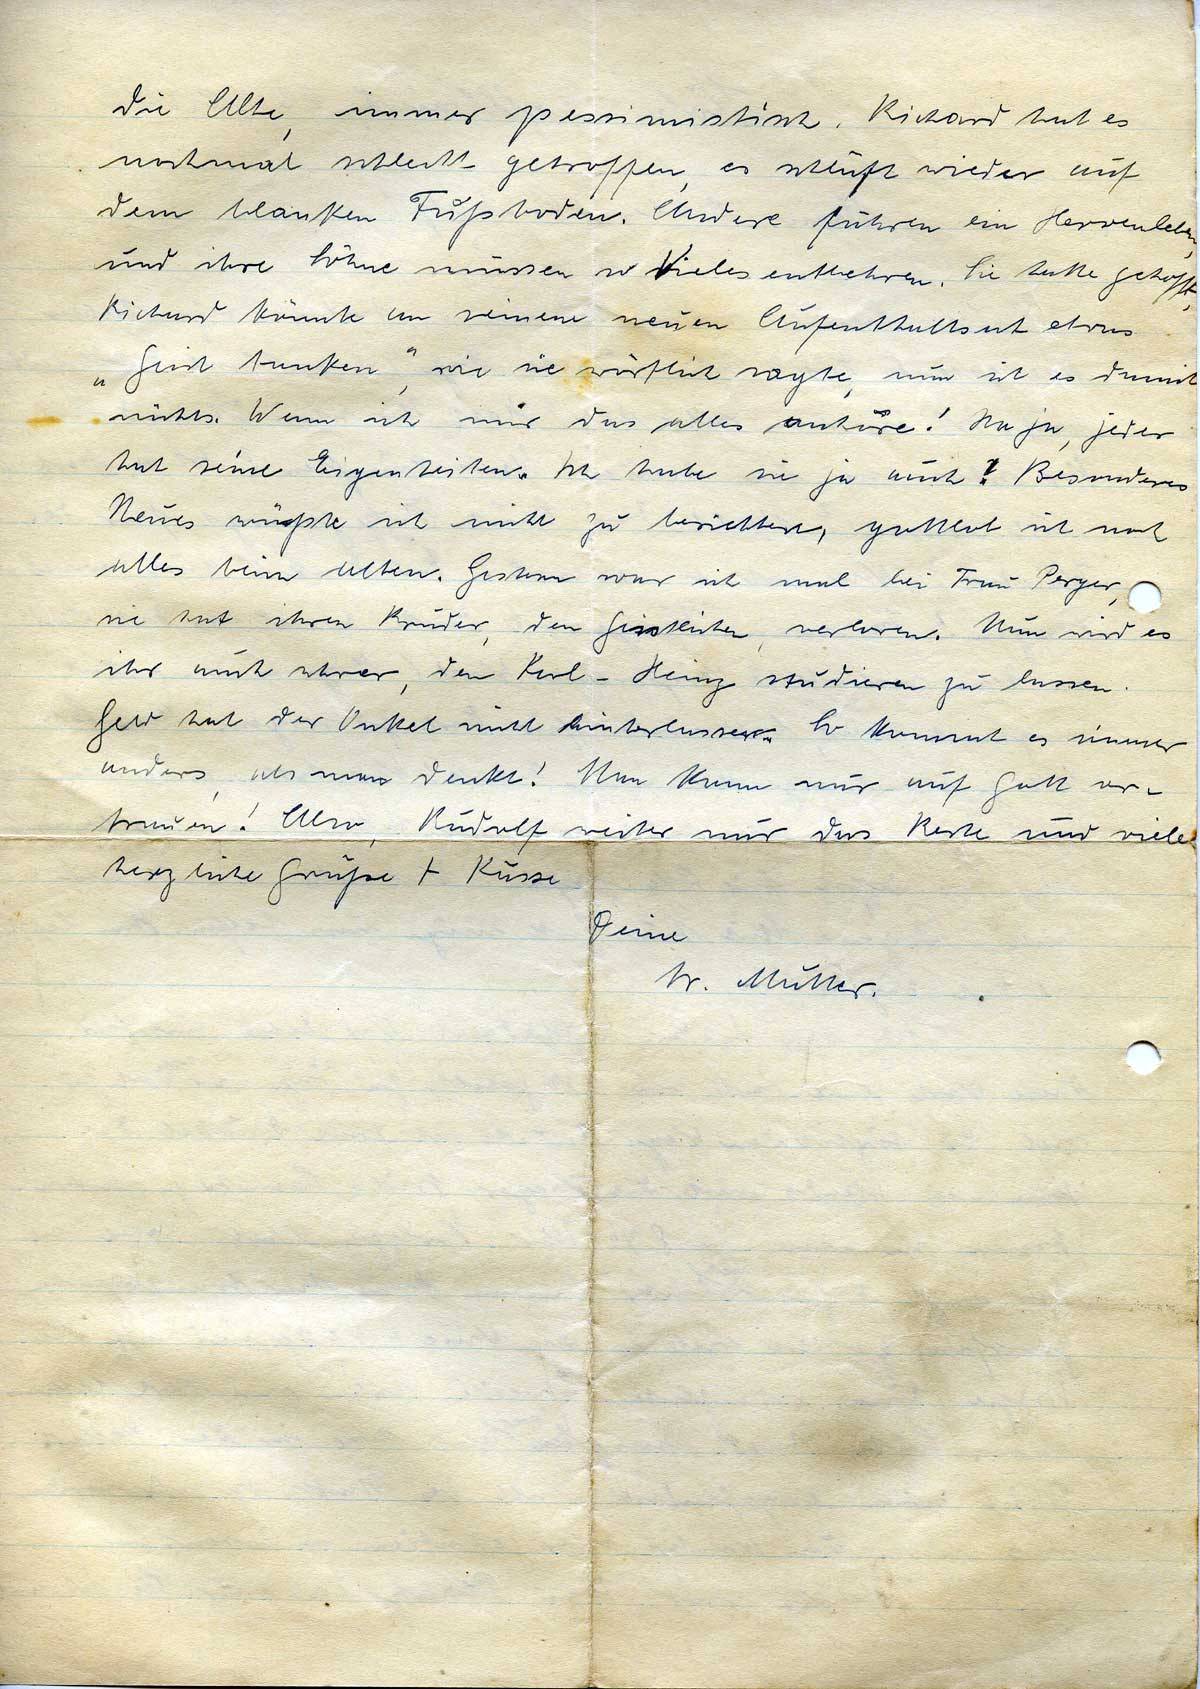 die Alte, immer pessimistisch. Richard hat es
nochmal schlecht getroffen, er schläft wieder auf
dem blanken Fußboden. Andere führen ein Herrenleben,
und ihre Söhne müssen so Vieles entbehren. Sie hatte gehofft,
Richard könnte an seinem neuen Aufenthaltsort etwas
„Geist tanken", wie sie wörtlich sagte, nun ist es damit
nichts. Wenn ich mir das alles anhöre! Na ja, jeder
hat seine Eigenheiten. Ich habe sie ja auch! Besonderes
Neues wüßte ich nicht zu berichten, gottlob ist noch
alles beim alten. Gestern war ich mal bei Frau Perger,
sie hat ihren Bruder, den Geistlichen, verloren. Nun wird es
ihr auch schwer, den Karl-Heinz studieren zu lassen.
Geld hat der Onkel nicht hinterlassen. So kommt es immer
anders, als man denkt! Man kann nur auf Gott ver-
trauen! Also, Rudolf weiter nur das Beste und viele
herzliche Grüße + Küsse
Deine
tr. Mutter.